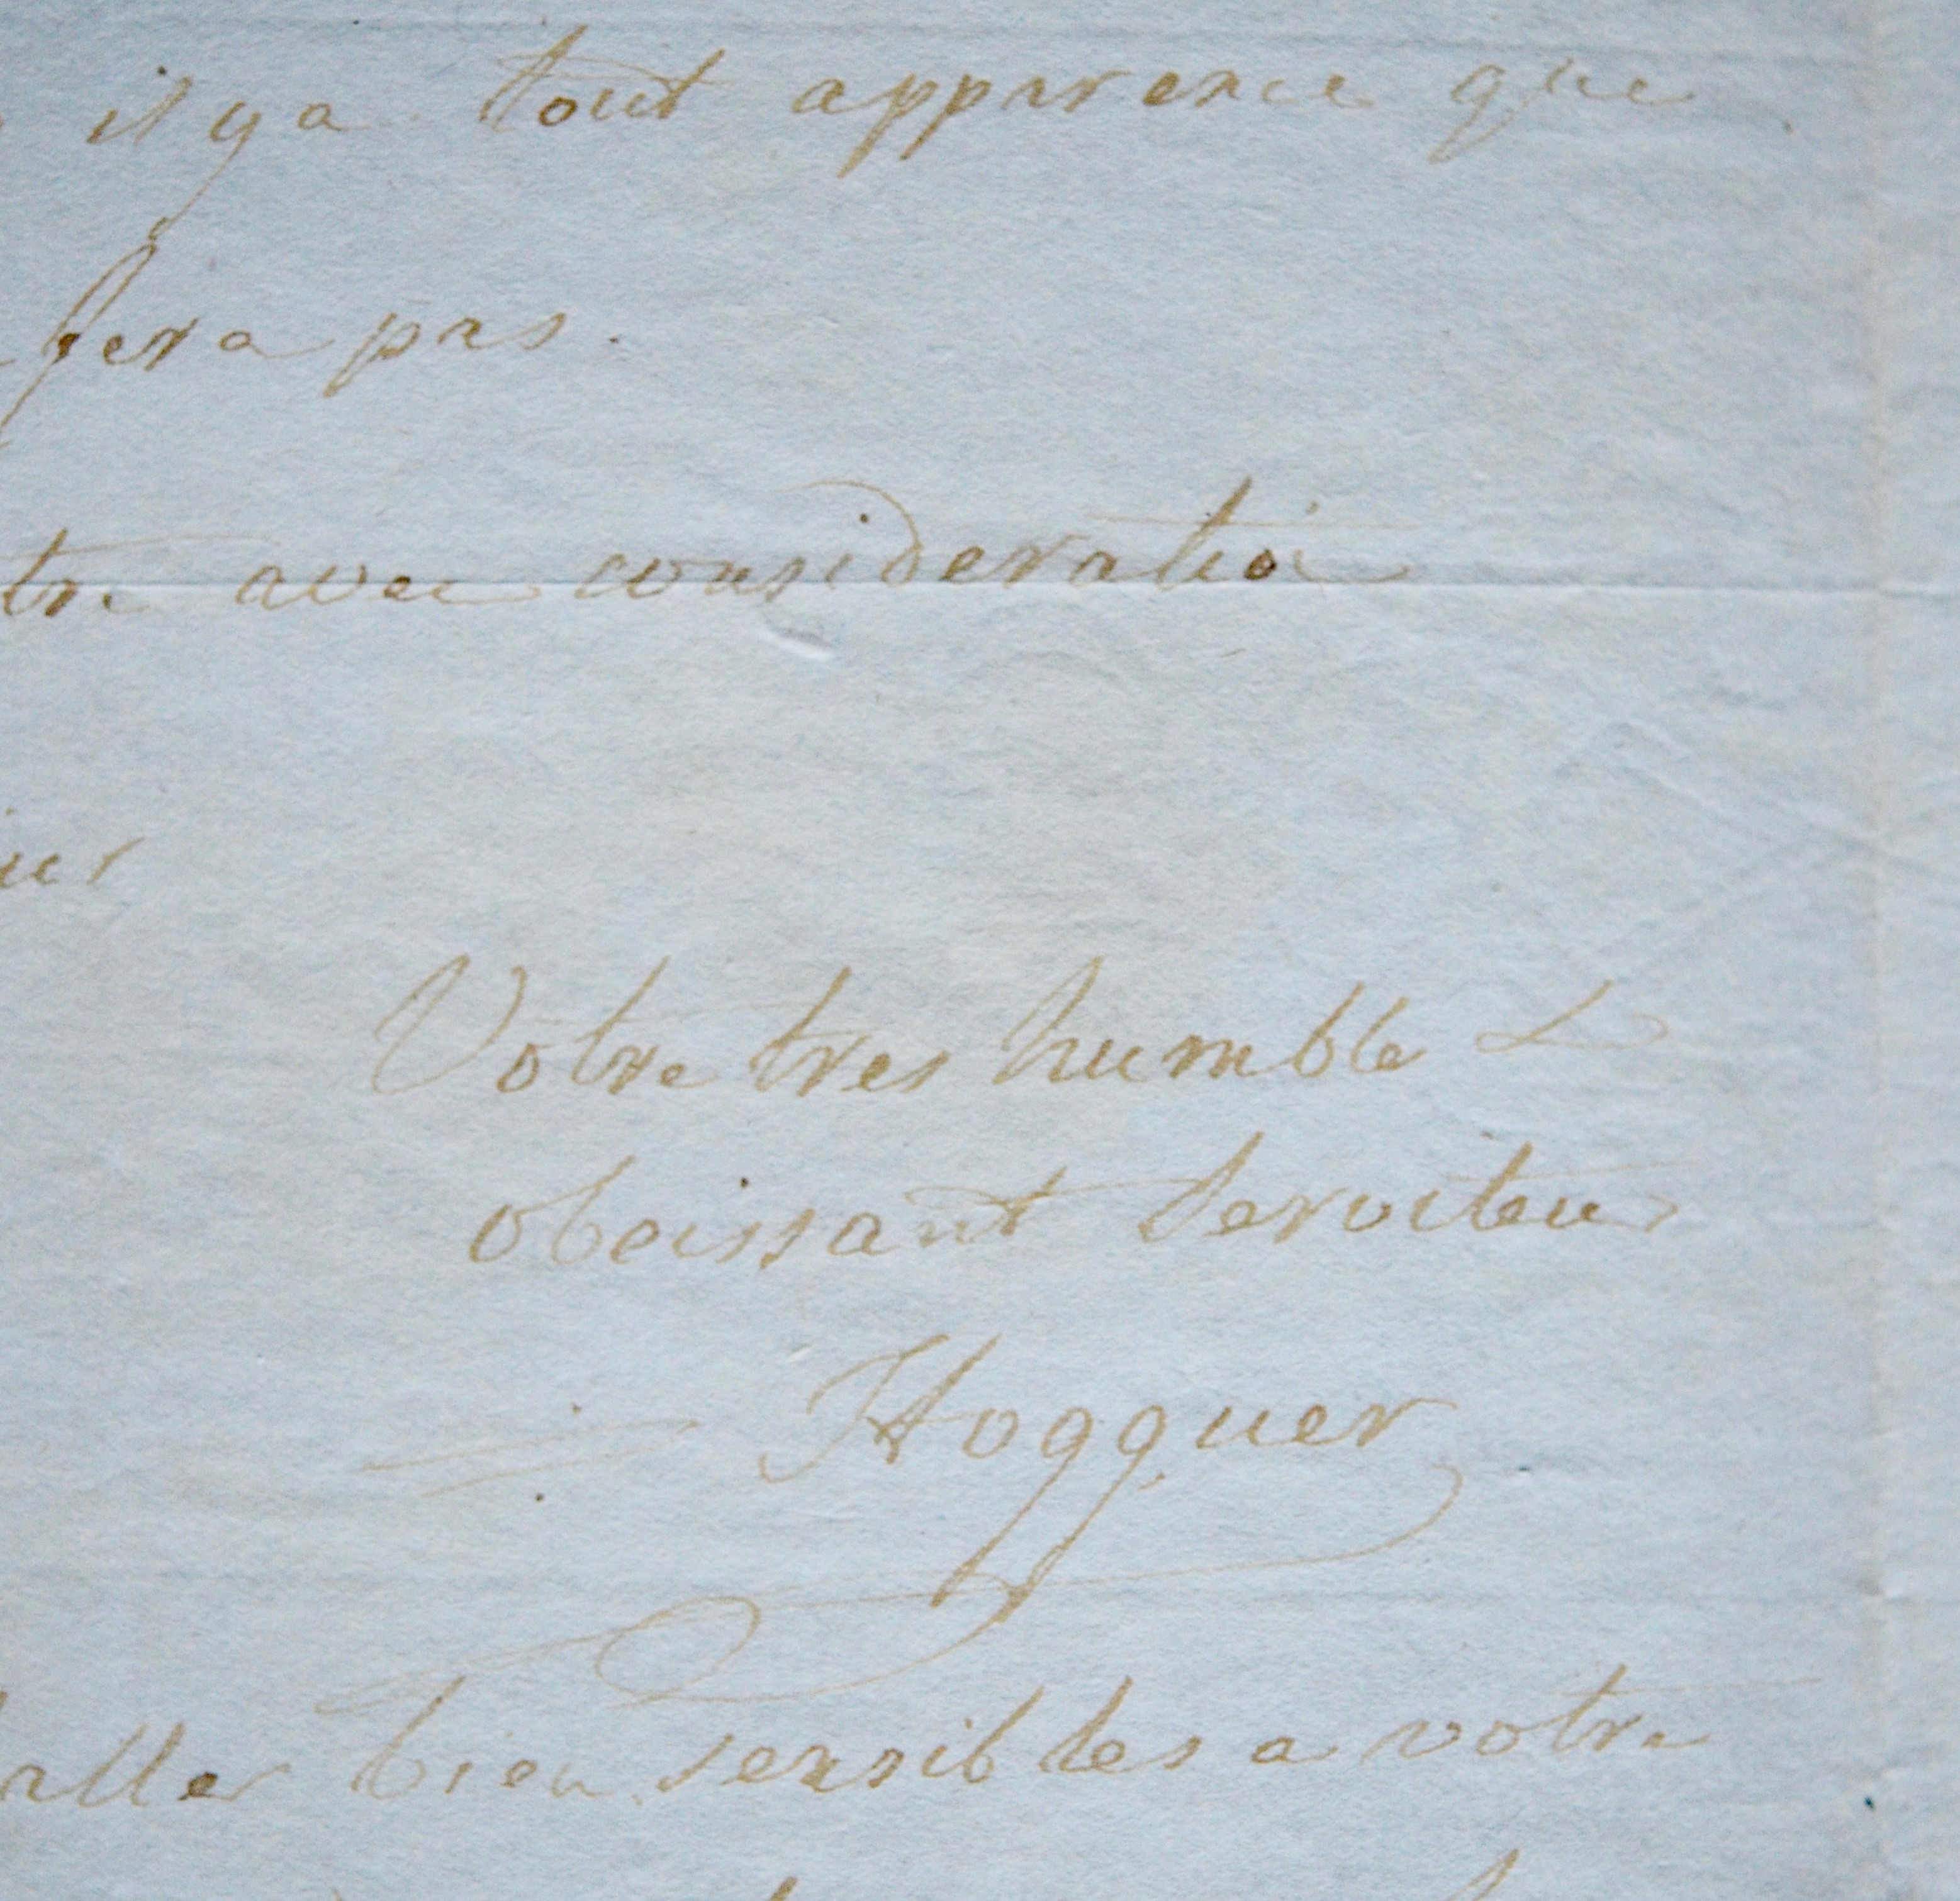 il y a tout apparence que
fera pas.
avec consideration
Votre tres humble &
obeissant Serviteur
Hogguer
bien sensibles a votre